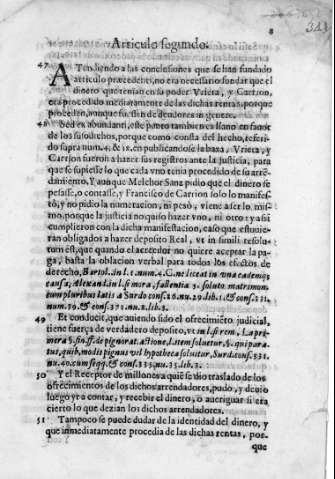 8
Articulo segundo.
47 ATendiendo a las conclusiones que se han fundado
articulo præcedenti, no era necessario fundar que el
dinero que tenian en su poder Vriera, y Carrion,
era procedido mediatamente de las dichas rentas, porque
proceden, aunque fuessen deudores in genere.
48 Sed ex abundanti, este punto tambien es llano en fauor
de los susodichos, porque como consta del hecho, referido
supra num. 4. & 18. en publicandose la baxa, Vriera, y
Carrion fueron a hazer sus registros ante la justicia, para
que se supiesse lo que cada vno tenia procedido de su arrendamiento,
Y aunque Melchor Sanz pidio que el dinero se
pesasse, o contasse, y Francisco de Carrion solo lo manifestò,
y no pidio la numeracion, ni pesò, viene a ser lo mismo,
porque la justicia no quiso hazer vno, ni otro: y assi
cumplieron con la dicha manifestacion, caso que estuuieran
obligados a hazer deposito Real, vt in simili resolutum
est, que quando el acreedor no quiere acceptar la paga,
basta la oblacion verbal para todos los efectos de
derecho, Bartol. in l. 1. num. 4. C. ne liceat in vna eademq;
causa, Alexand. in l. si mora, fallentia 3. soluto matrimon.
cum pluribus latis a Surdo cons. 16. nu. 29. lib. 1. & cons. 21.
num. 39. & cons. 371. nu. 2. lib. 3.
49 Et conducit, que auiendo sido el ofrecimiẽto judicial,
tiene fuerça de verdadero deposito, vt in l. si rem,
§. fin. ff. de pignorat. actione, l. item soluetur, §. qui paratus,
quib. modis pignus vel hypotheca soluitur, Surd. cons. 331.
nu. 40. cum seqq. & cons. 335. nu. 35. lib. 3.
50 Y el Receptor de millones a quiẽ se dio traslado de los
ofrecimentos de los dichos arrendadores, pudo, y deuio
luego yr a contar, y recebir el dinero, o aueriguar si era
cierto lo que dezian los dichos arrendadores.
51 Tampoco se puede dudar de la identidad del dinero, y
que inmediatamente procedia de las dichas rentas, porque